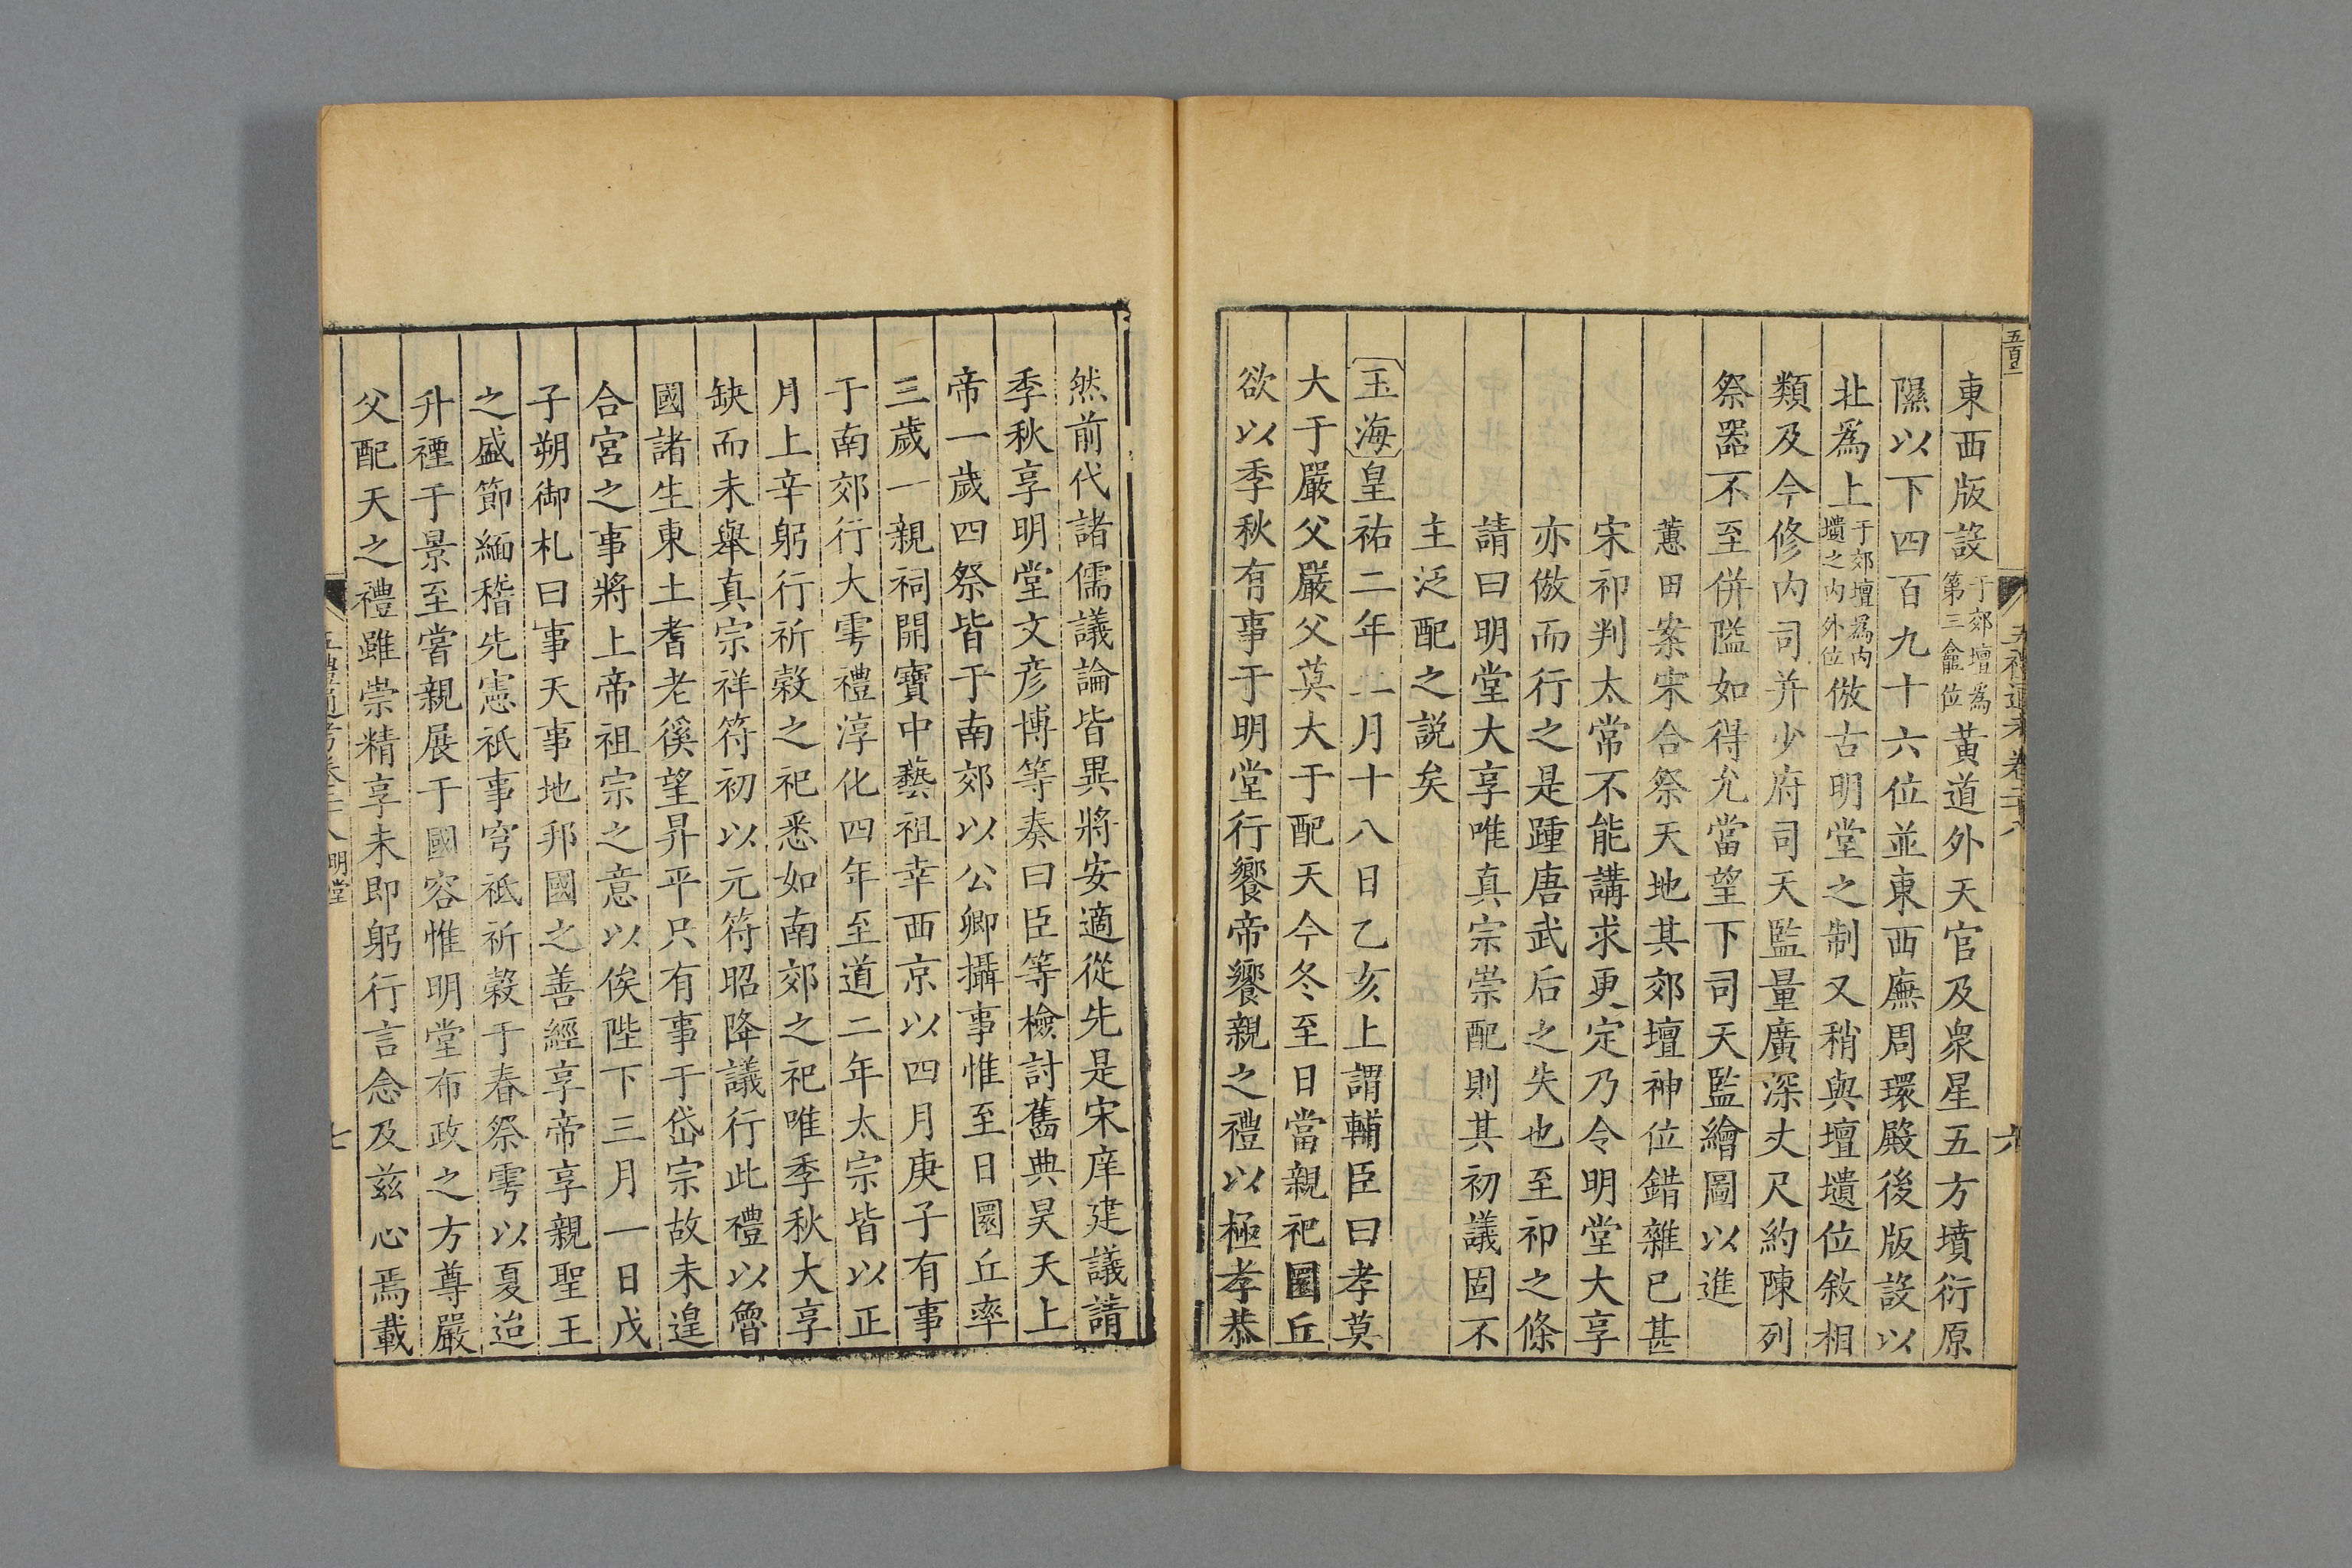 東西版設于郊壇爲第三龕位黃道外天官及衆星五方墳衍原
隰以下四百九十六位並東西廡周環殿後版設以
北爲上于郊壇爲内壝之内外位倣古明堂之制又稍與壇壝位敘相
類及今修内司并少府司天監量廣深丈尺約陳列
祭器不至併隘如得允當望下司天監繪圖以進
蕙田案宋合祭天地其郊壇神位錯雜已甚
宋祁判太常不能講求更定乃令明堂大享
亦倣而行之是踵唐武后之失也至祁之條
請曰明堂大享唯真宗崇配則其初議固不
主泛配之説矣
玉海皇祐二年二月十八日乙亥上謂輔臣曰孝莫
大于嚴父嚴父莫大于配天今冬至日當親祀圜丘
欲以季秋有事于明堂行饗帝饗親之禮以極孝恭
然前代諸儒議論皆異將安適從先是宋庠建議請
季秋享明堂文彦博等奏曰臣等檢討舊典昊天上
帝一歲四祭皆于南郊以公卿攝事惟至日圜丘率
三歲一親祠開寶中藝祖幸西京以四月庚子有事
于南郊行大雩禮淳化四年至道二年太宗皆以正
月上辛躬行祈穀之祀悉如南郊之祀唯季秋大享
缺而未舉真宗祥符初以元符昭降議行此禮以魯
國諸生東土耆老徯望昇平只有事于岱宗故未遑
合宮之事將上帝祖宗之意以俟陛下三月一日戊
子朔御札曰事天事地邦國之善經享帝享親聖王
之盛節緬稽先憲祇事穹祗祈穀于春祭雩以夏迨
升禋于景至嘗親展于國容惟明堂布政之方尊嚴
父配天之禮雖崇精享未即躬行言念及兹心焉載
五禮通考卷二十八 明堂
七
五禮通考卷二十八
六